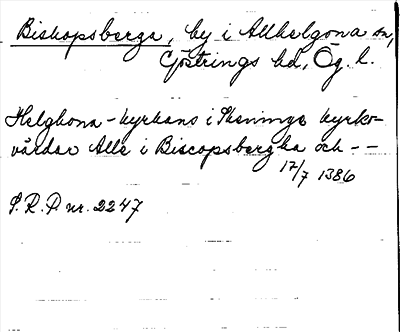 Biskopsberga, by i Allhelgona sn,
Göstrings hd, Ög. l.
Helghona-kyrkans i Skeninge kyrko-
vårdar Alle i Biscopsbergha och - -
17/7 1386
S. R. P. nr. 2247